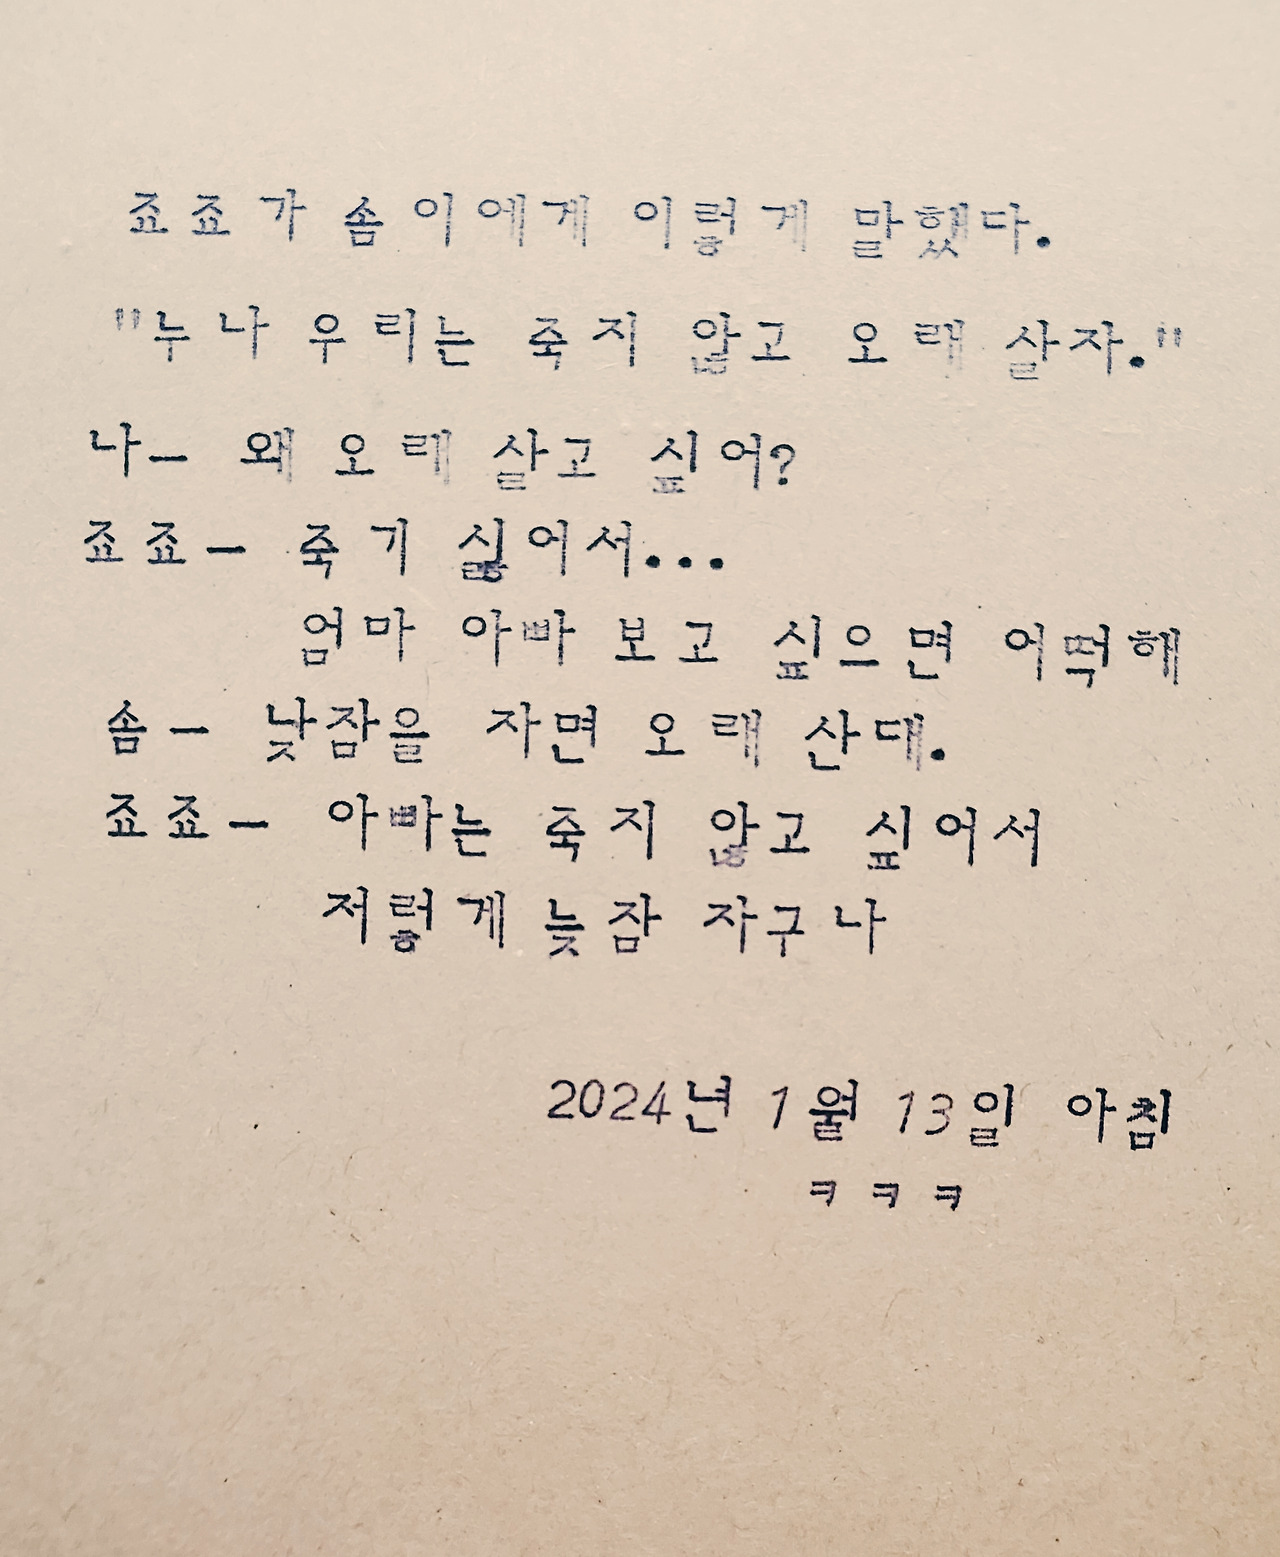 죠죠가 솜이에게 이렇게 말했다.
"누나 우리는 죽지 않고 오래 살자."
나- 왜 오래 살고 싶어?
죠죠- 죽기 싫어서...
엄마 아빠 보고 싶으면 어떡해
솜- 낮잠을 자면 오래 산대.
죠죠- 아빠는 죽지 않고 싶어서
저렇게 늦잠 자구나
2024년 1월 13일 아침
ㅋㅋㅋ